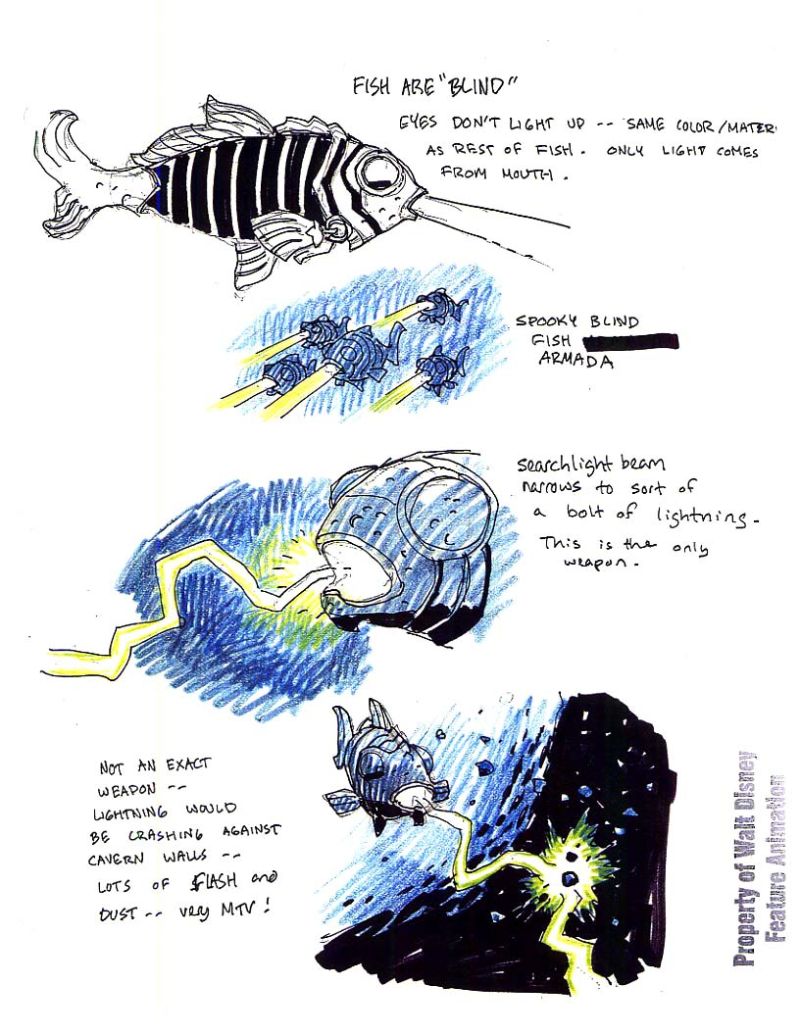 FISH ARE "BLIND"
EYES DON'T LIGHT UP -- SAME COLOR/MATER
AS REST OF FISH. ONLY LIGHT COMES
FROM MOUTH.
SPOOKY BLIND
FISH
ARMADA
searchlight beam
narrows to sort of
a bolt of lightning.
This is the only
weapon.
NOT AN EXACT
WEAPON --
LIGHTNING WOULD
BE CRASHING AGAINST
CAVERN WALLS --
LOTS OF FLASH and
DUST -- very MTV!
Property of Walt Disney
Feature Animation